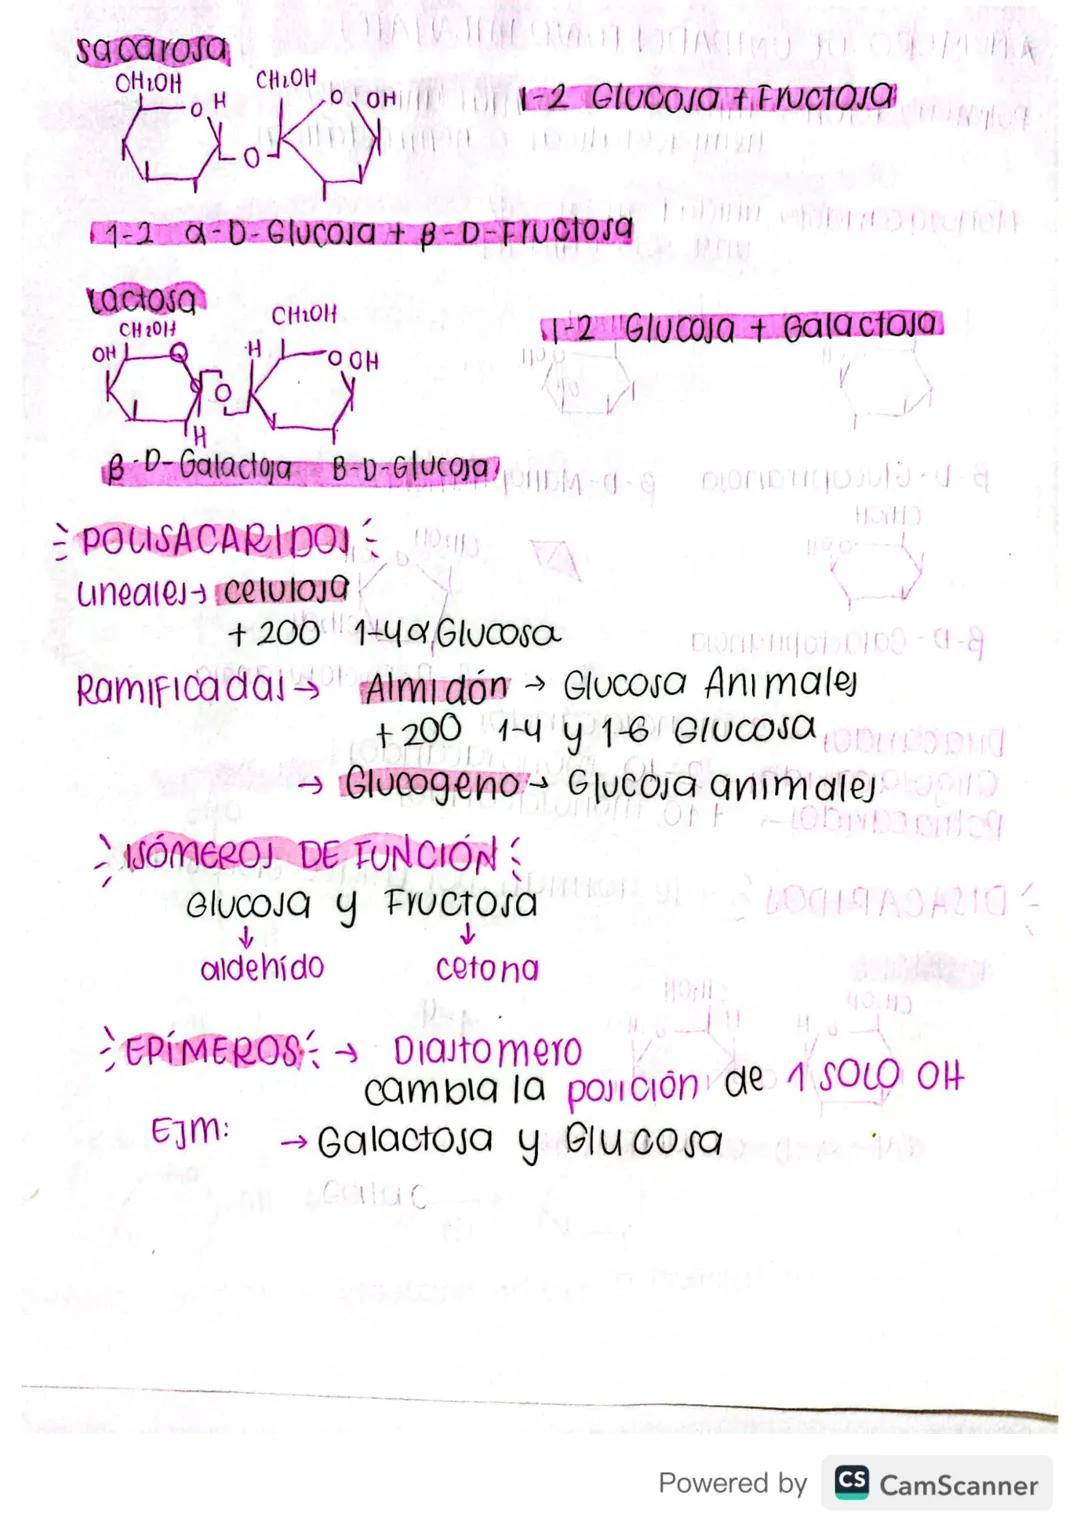 sacarosa
CH2OH CH2OH
O H O OH
O
1-2 Glucosa + Fructosa
1-2 α-D-Glucosa + β-D-Fructosa
Lactosa
CH2OH CH2OH
OH O H O OH
O
H
1-2 Glucosa + Galactosa
β-D-Galactosa B-D-Glucosa
POLISACARIDOS
Lineales → celulosa
+200 1-4 α Glucosa
Ramificadas → Almidón → Glucosa Animales
+200 1-4 y 1-6 Glucosa
→ Glucogeno → Glucosa animales
ISÓMEROS DE FUNCIÓN
Glucosa y Fructosa
↓ ↓
aldehído cetona
EPÍMEROS → Diastomero
cambia la posición de 1 SOLO OH
EJM: → Galactosa y Glucosa
Galac
Powered by CS CamScanner